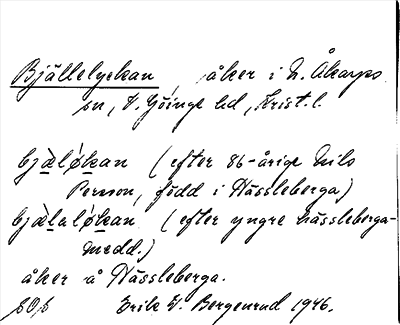 Bjällelyckan åker i N. Åkarps
sn, V. Göinge hd, Krist. l.
bjälǿkan (efter 86-årige Nils
Persson, född i Hässleberga)
bjälalǿkan (efter yngre hässleberga-
medd.)
åker å Hässleberga.
Erik V. Bergenrud 1946.